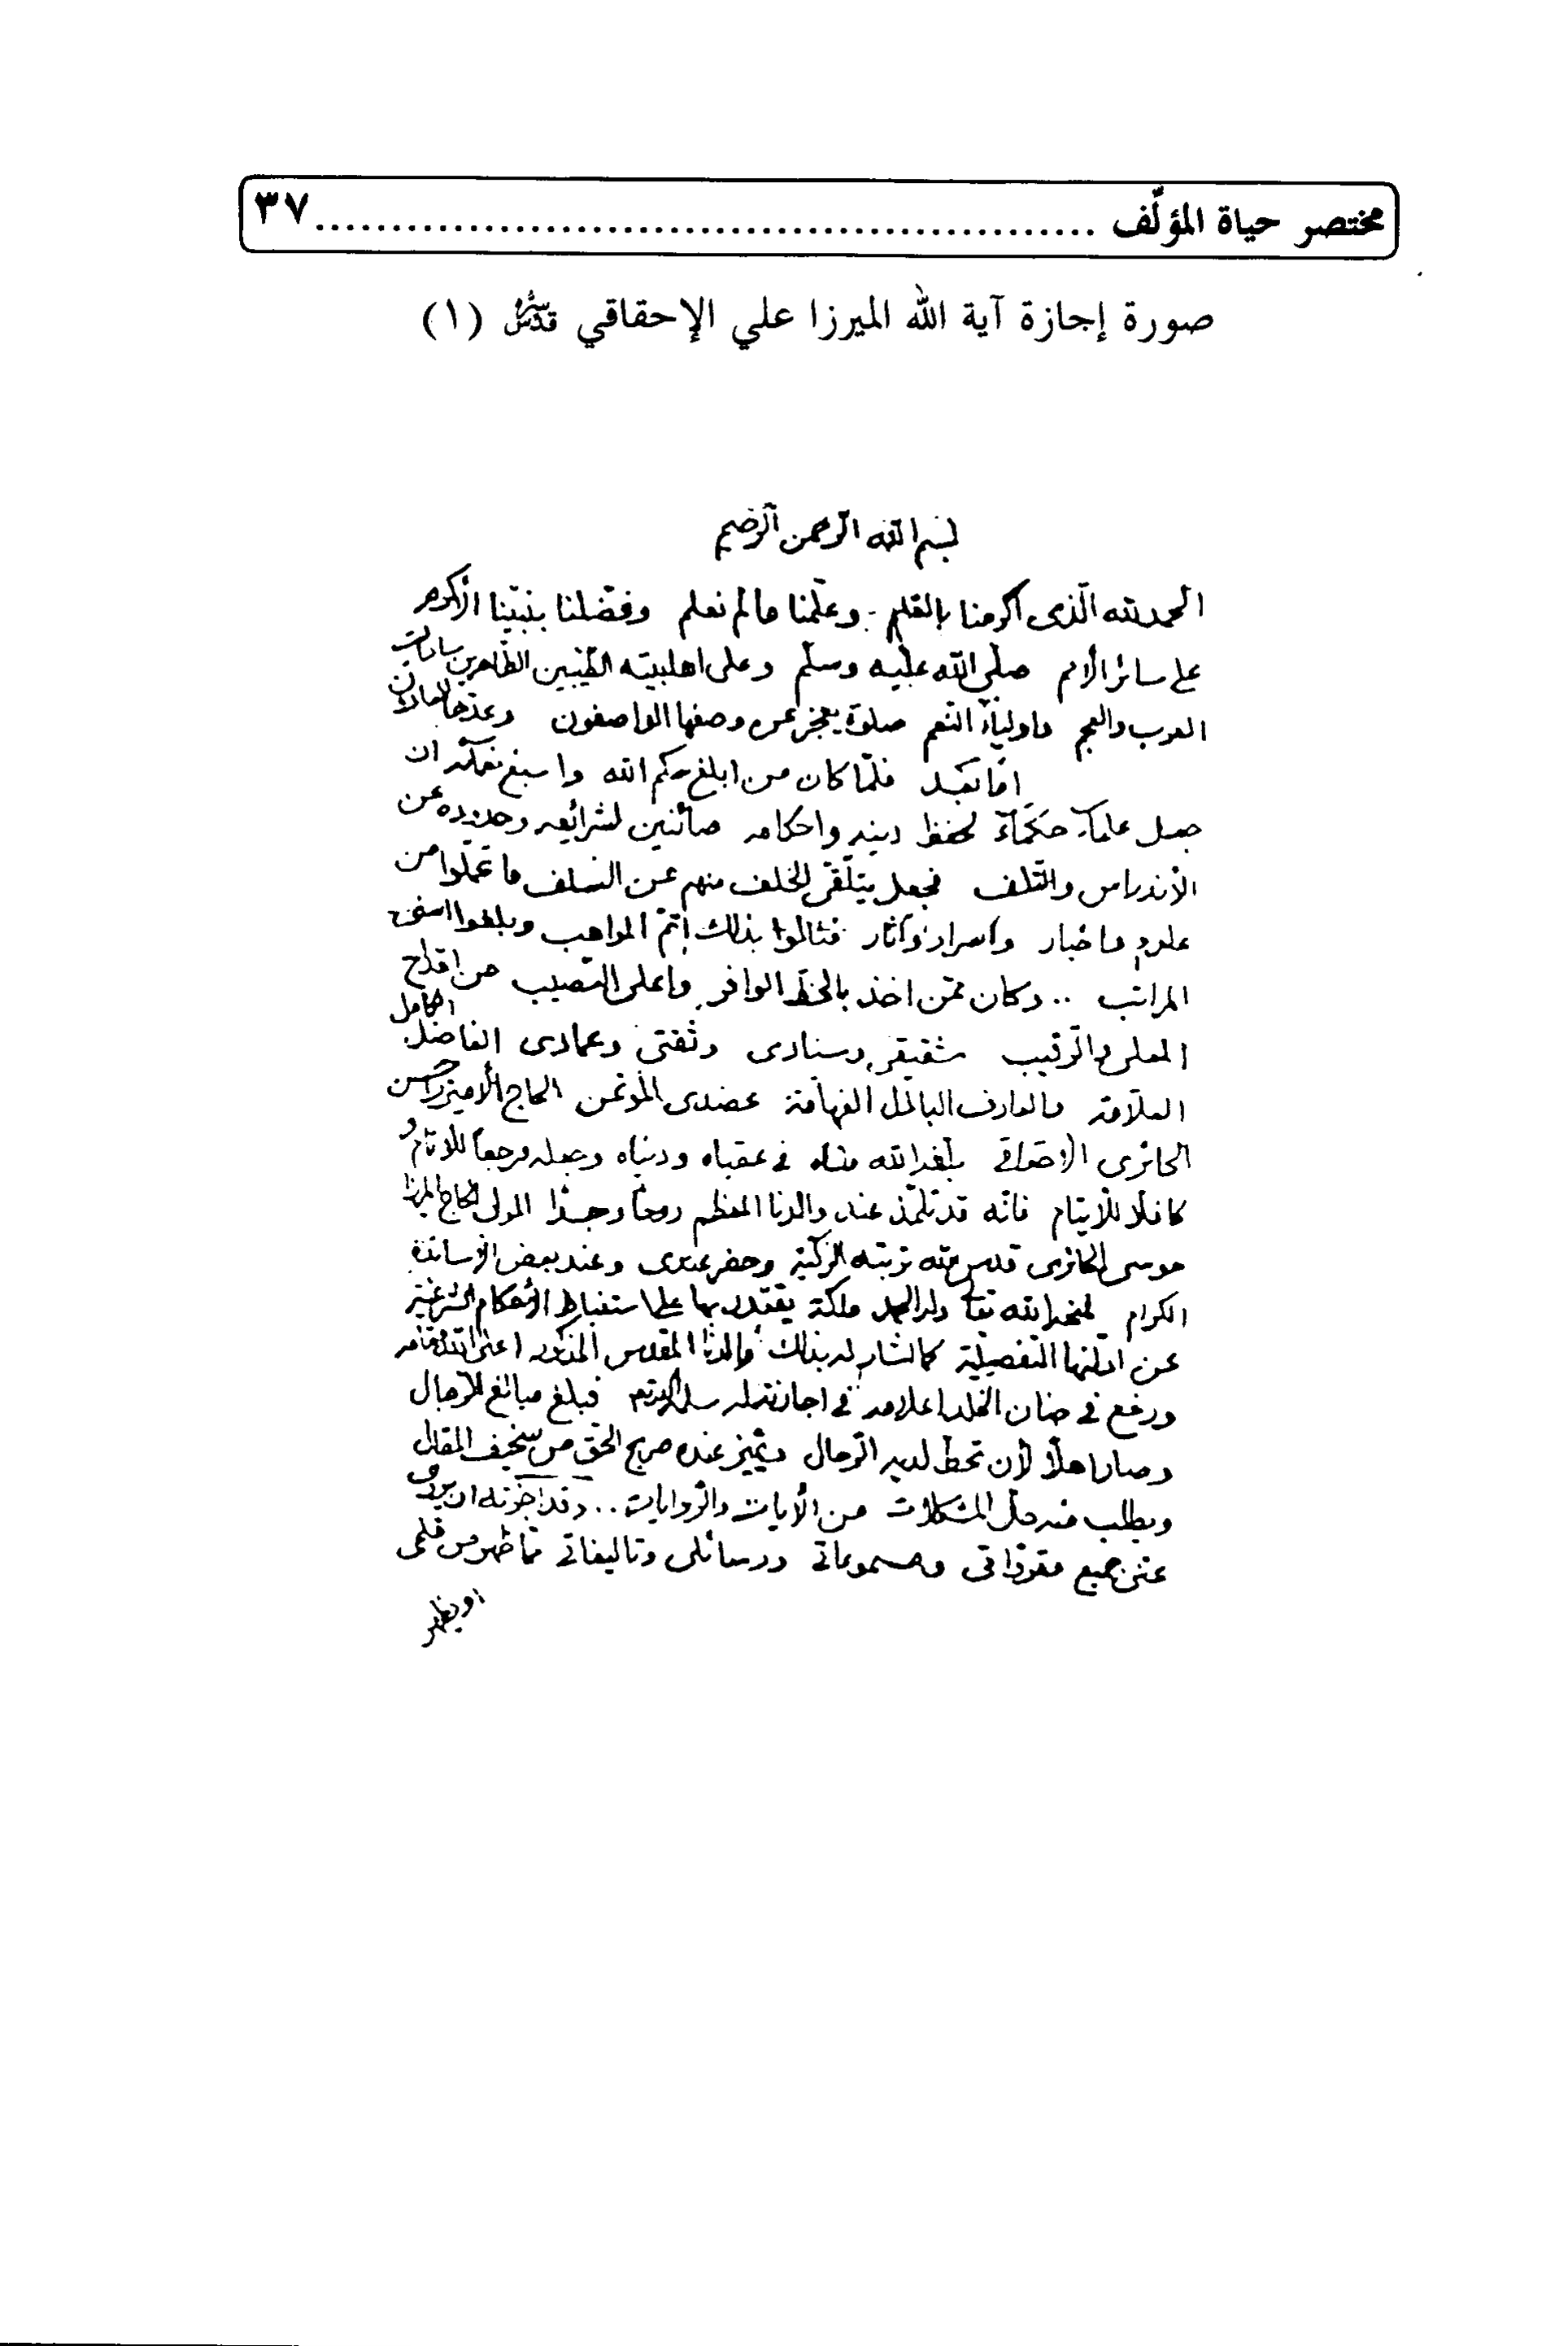 مختصر حياة المؤلّف ..................................................... ٣٧
صورة إجازة آية الله الميرزا علي الإحقاقي قدّس سرّه (١)
بسم الله الرّحمن الرّحيم
الحمد لله الّذى اكرمنا بالقلم وعلّمنا مالم نعلم وفضّلنا بنبيّنا الأكرم
على سائر الأمم صلّى الله عليه وسلّم وعلى اهلبيته الطّيّبين الطّاهرين سادات
العرب والعجم واولياء النّعم صلوة يعجز عن وصفها الواصفون وعدّها العادّون
امّا بعد فلمّا كان من ابلغ حكم الله واسبغ نعمه ان
جعل علماء حكماء لحفظ دينه واحكامه صائنين لشرائعه وحدوده عن
الأندراس والتّلف فجعل يتلقّى الخلف منهم عن السّلف ما تحمّلوا من
علوم واخبار واسرار وآثار فنالوا بذلك اتمّ المواهب وبلغوا اسنى
المراتب .. وكان ممّن اخذ بالحظّ الوافر واعلى النّصيب من اقداح
المعلى والرّقيب شقيقى وسنادى وثقتى وعمادى الفاضل الكامل
العلّامة والعارف الباذل الفهّامة عضدى المؤتمن الحاج الأميرزا حسن
الحائرى الاحقاقى بلّغه الله مناه فى عقباه ودنياه وجعله مرجعاً للأنام و
كافلا للأيتام فانّه قد تلمّذ عند والدنا المعظم روحاً وجسدا المولى الحاج الميرزا
موسى الحائرى قدس الله تربته الزكيّة وحضر عندى وعند بعض الأساتذة
الكرام فمنحه الله تعالى وله الحمد ملكة يقتدر بها على استنباط الأحكام الشّرعيّة
عن ادلّتها التفصيلية كما اشار له بذلك والدنا المقدس المذكور اعلى الله مقامه
ورفع فى جنان الخلد اعلامه فى اجازته له فبلغ مبالغ الرّجال
وصار اهلاً لأن تحطّ لديه الرّحال ويتميّز عنده صريح الحقّ من سخيف المقال
ويطلب منه حلّ المشكلات من الآيات والرّوايات .. وقد اجزته ان يروى
عنّى جميع مقروّاتى ومسموعاتى ورسائلى وتاليفاتى ممّا ظهر من قلمى
او يظهر